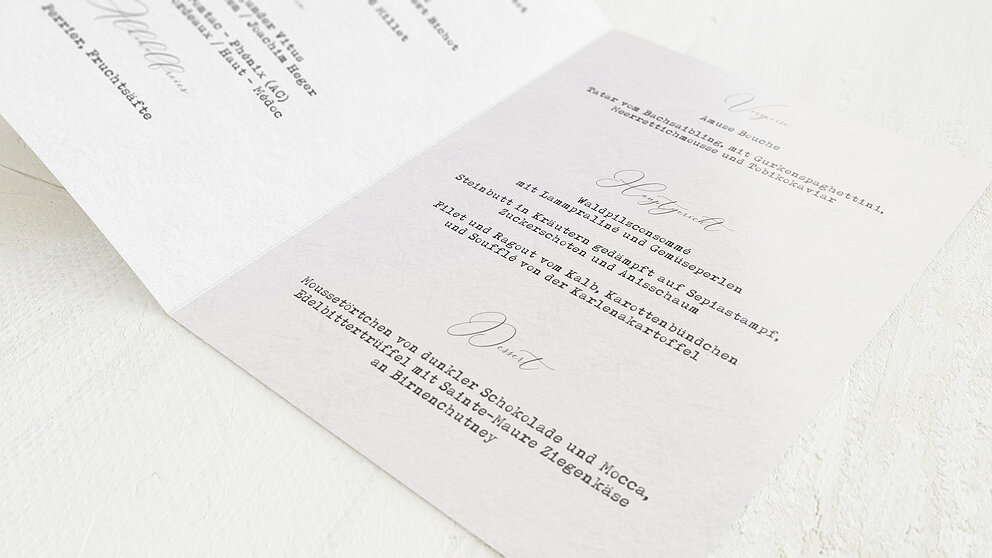 Vitus
/ Joachim Heger
– Phénix (AC)
/ Haut – Médoc
Alkoholfreies
Perrier, Fruchtsäfte
Vorspeise
Amuse Bouche
Tatar vom Bachsaibling, mit Gurkenspaghettini,
Meerrettichmousse und Tobikokaviar
Hauptgericht
Waldpilzconsommé
mit Lammpraliné und Gemüseperlen
Steinbutt in Kräutern gedämpft auf Sepiastampf,
Zuckerschoten und Anisschaum
Filet und Ragout vom Kalb, Karottenbündchen
und Soufflé von der Karlenakartoffel
Dessert
Moussetörtchen von dunkler Schokolade und Mocca,
Edelbittertrüffel mit Sainte-Maure Ziegenkäse
an Birnenchutney